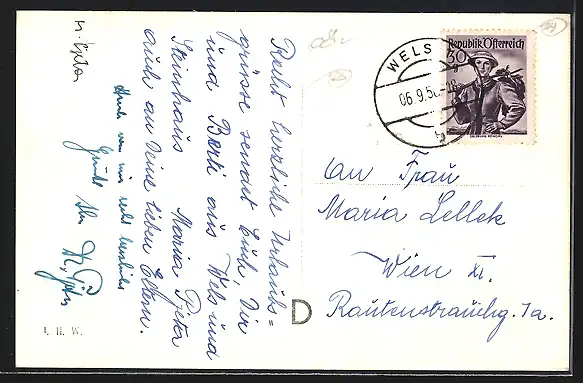 Recht herzliche Urlaubs=
grüsse sendet Euch, Dir
und Berti aus Wels und
Steinhaus Maria Peter
auch an Deine lieben Eltern.
Auch von mir recht herzliche
Grüße Ihr
WELS
06.9.5
Republik Österreich
30 g
An Frau
Maria Lellek
Wien XI.
Rautenstrauchg. 1a.
D
I. H. W.